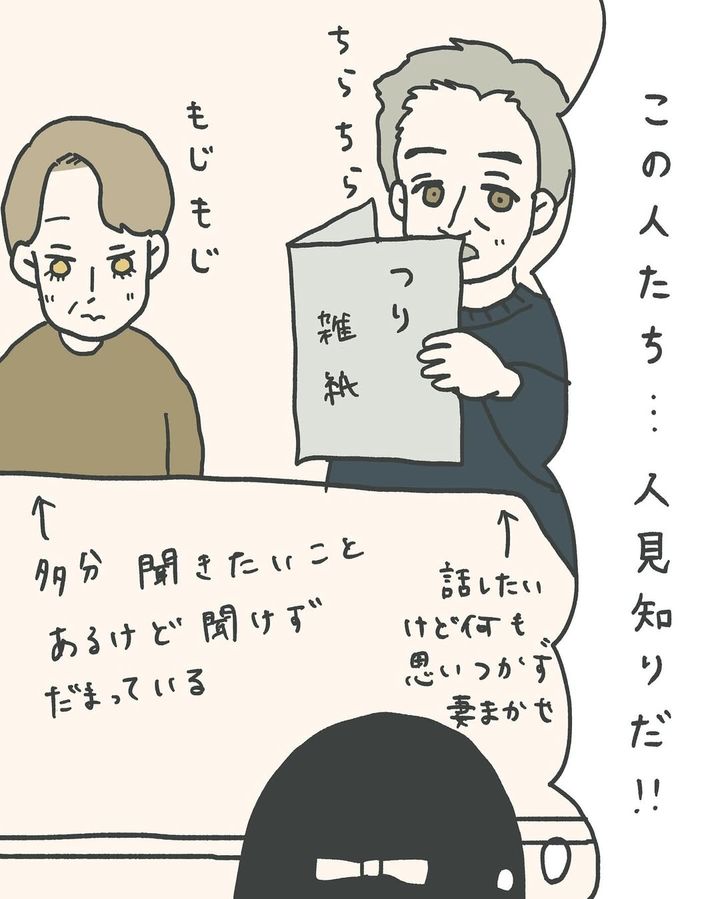 この人たち…人見知りだ!!
ちらちら
つり
雑紙
もじもじ
話したい
けど何も
思いつかず
妻まかせ
多分 聞きたいこと
あるけど聞けず
だまっている